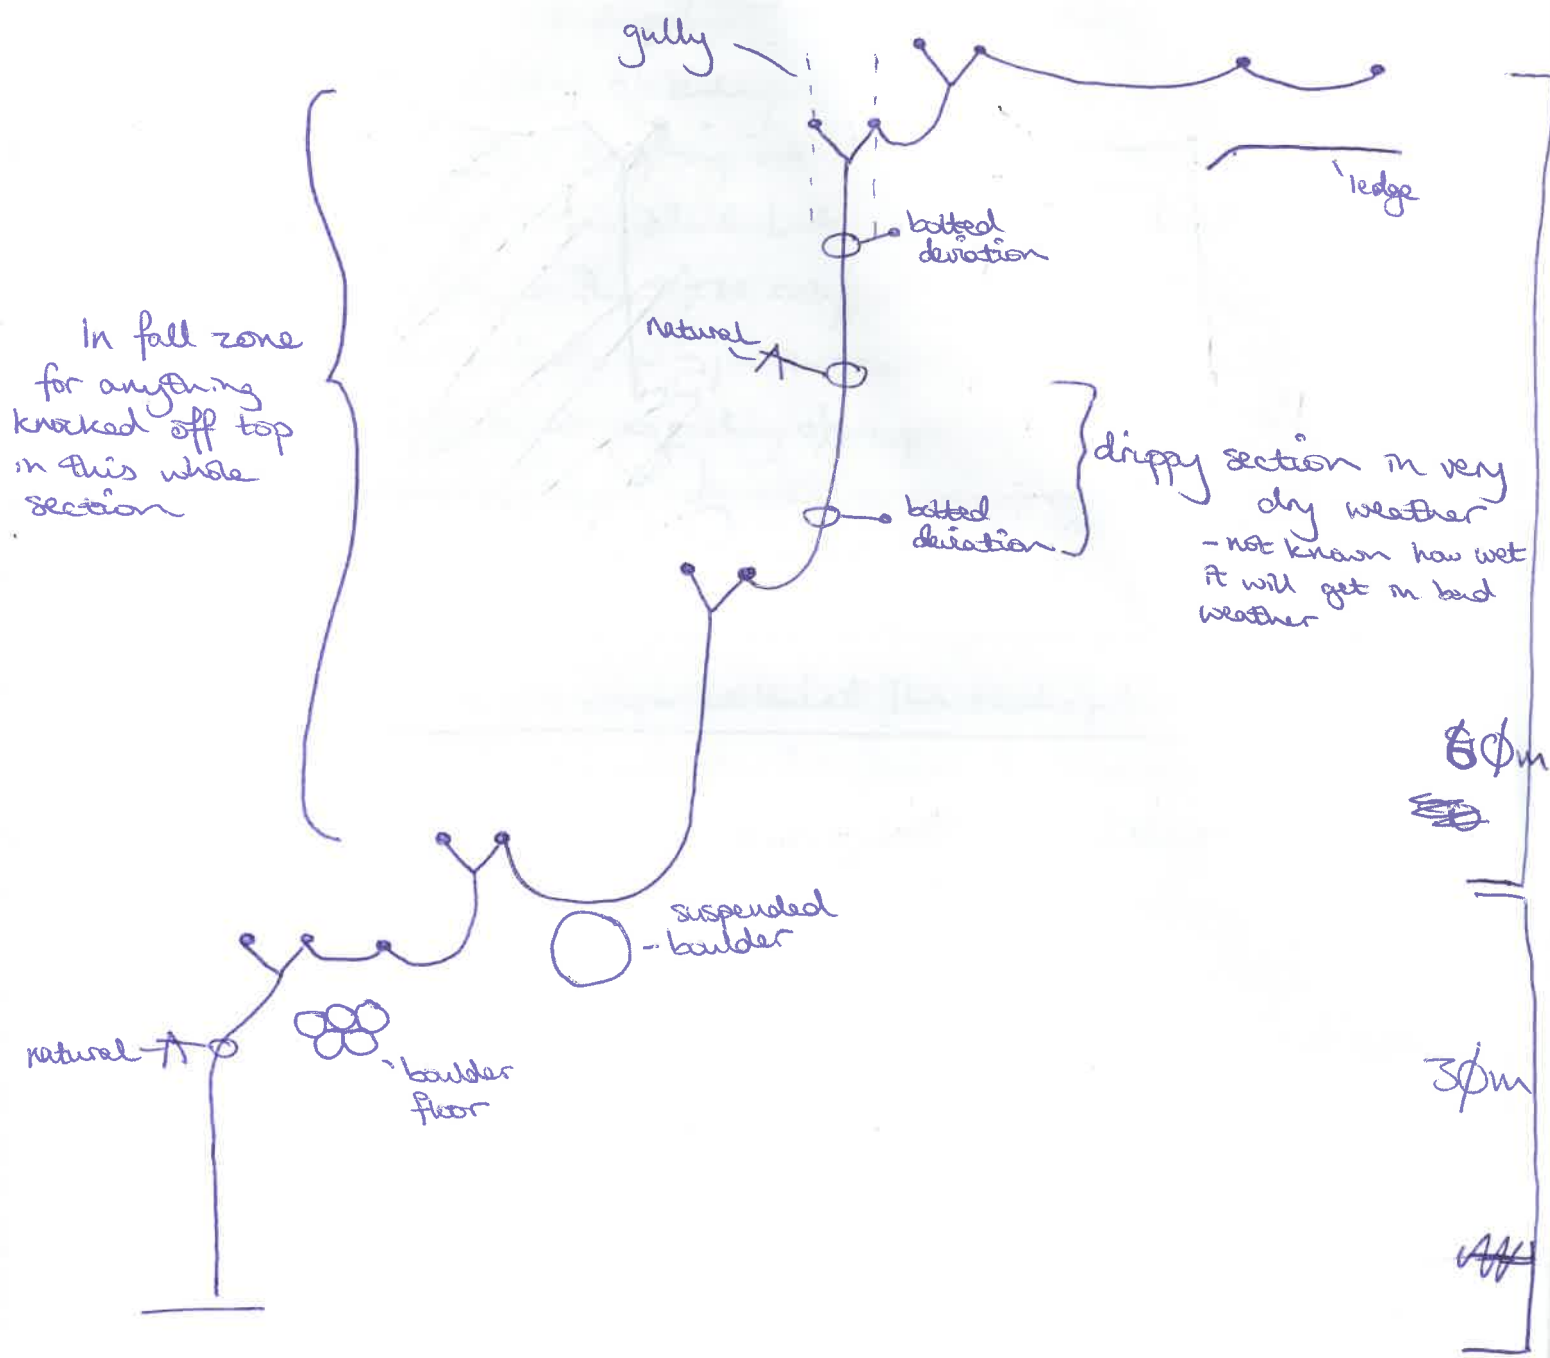 gully
ledge
bolted
deviation
natural
In fall zone
for anything
knocked off top
in this whole
section
drippy section in very
dry weather
- not known how wet
it will get in bad
weather
bolted
deviation
60m
suspended
boulder
natural
boulder
floor
30m